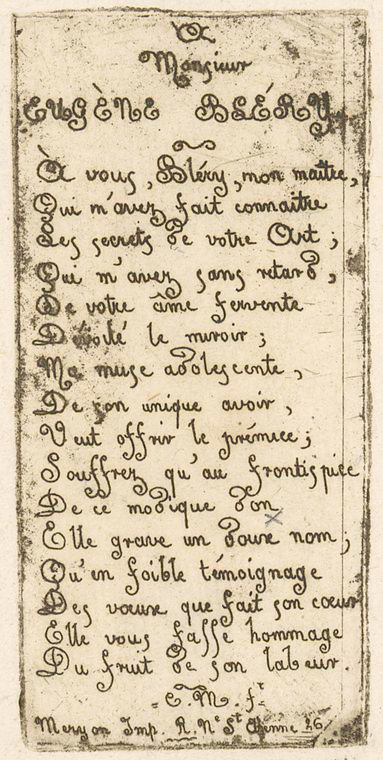 A
Monsieur
EUGÈNE BLÉRY
À vous, Bléry, mon maître,
Qui m'avez fait connaitre
Les secrets de votre Art;
Qui m'avez sans retard,
De votre âme fervente
Dévoilé le miroir;
Ma muse adolescente,
De son unique avoir,
Veut offrir le prémice;
Souffrez qu'au frontispice
De ce modique don
Elle grave un doux nom;
Qu'en foible témoignage
Des vœux que fait son cœur
Elle vous fasse hommage
Du fruit de son labeur.
C. M. ft
Meryon Imp. R. Ne St Etienne 26